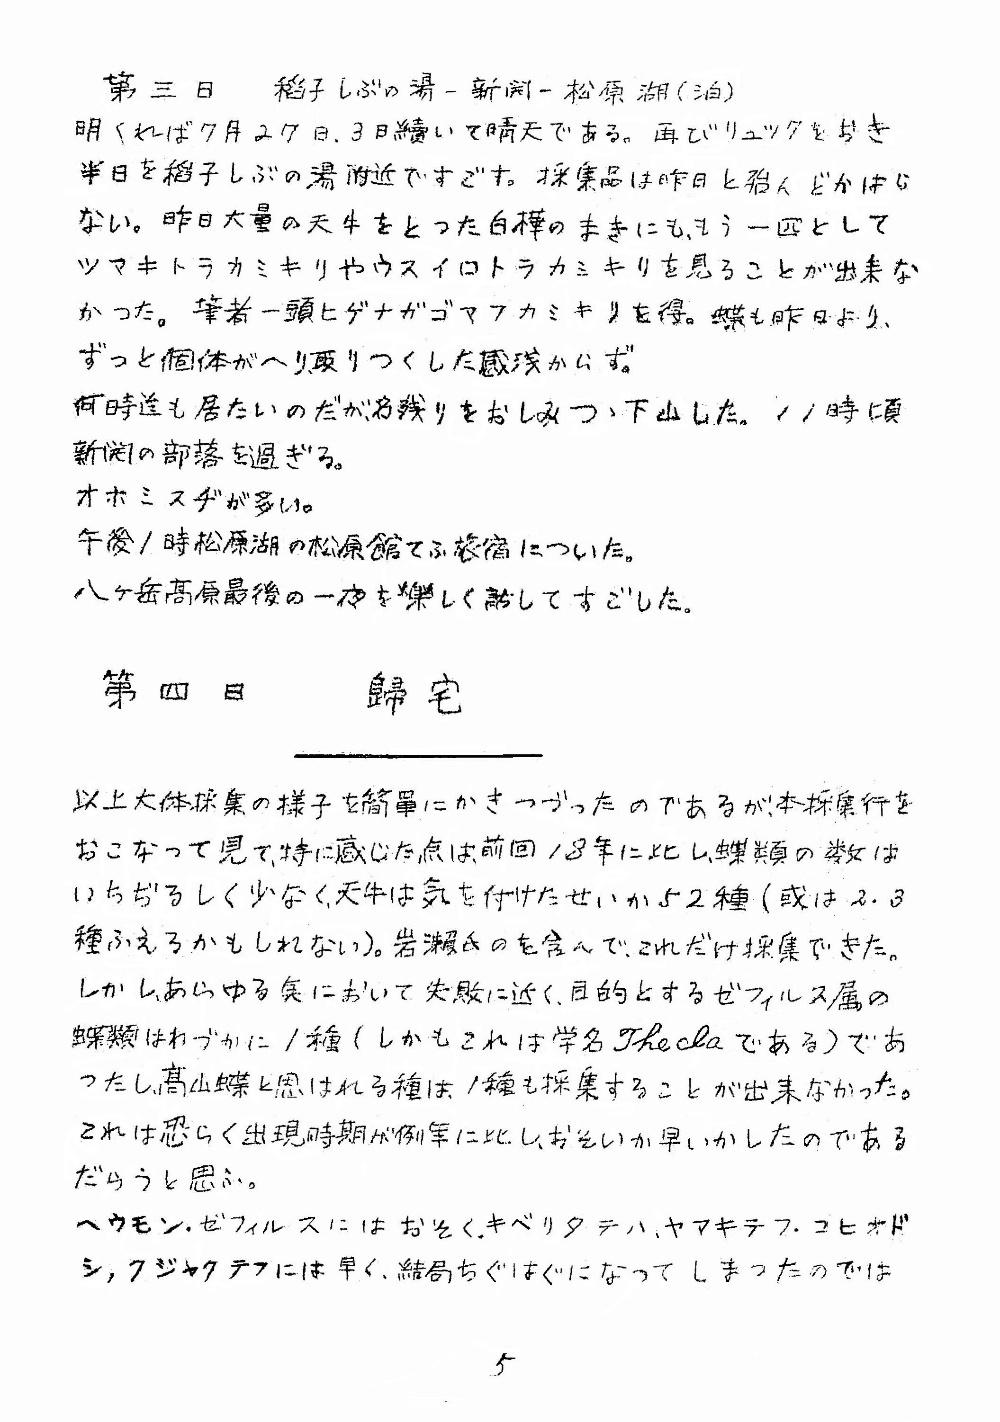 第三日 稻子しぶの湯-新開-松原湖(泊)
明くれば7月27日、3日續いて晴天である。再びリュックをおき
半日を稻子しぶの湯附近ですごす。採集品は昨日と殆んどかはら
ない。昨日大量の天牛をとった白樺のまきにも、もう一匹として
ツマキトラカミキリやウスイロトラカミキリを見ることが出来な
かった。筆者一頭ヒゲナガゴマフカミキリを得。蝶も昨日より、
ずっと個体がへり、取りつくした感浅からず。
何時迄も居たいのだが、名残りをおしみつゝ下山した。11時頃
新開の部落を過ぎる。
オホミスヂが多い。
午後1時松原湖の松原館てふ旅宿についた。
八ヶ岳高原最後の一夜を楽しく話してすごした。
第四日 歸宅
以上大体採集の様子を簡單にかきつづったのであるが、本採集行を
おこなって見て、特に感じた点は、前回18年に比し、蝶類の数は
いちぢるしく少なく、天牛は気を付けたせいか52種(或は2.3
種ふえるかもしれない)。岩瀬氏のを含んで、これだけ採集できた。
しかし、あらゆる点において失敗に近く、目的とするゼフィルス属の
蝶類はわづかに1種(しかもこれは学名Theclaである)であ
つたし、高山蝶と思はれる種は、1種も採集することが出来なかった。
これは恐らく出現時期が例年に比し、おそいか早いかしたのである
だらうと思ふ。
ヘウモン.ゼフィルスにはおそく、キベリタテハ、ヤマキテフ.コヒオド
シ,クジャクテフには早く、結局ちぐはぐになってしまつたのでは
5